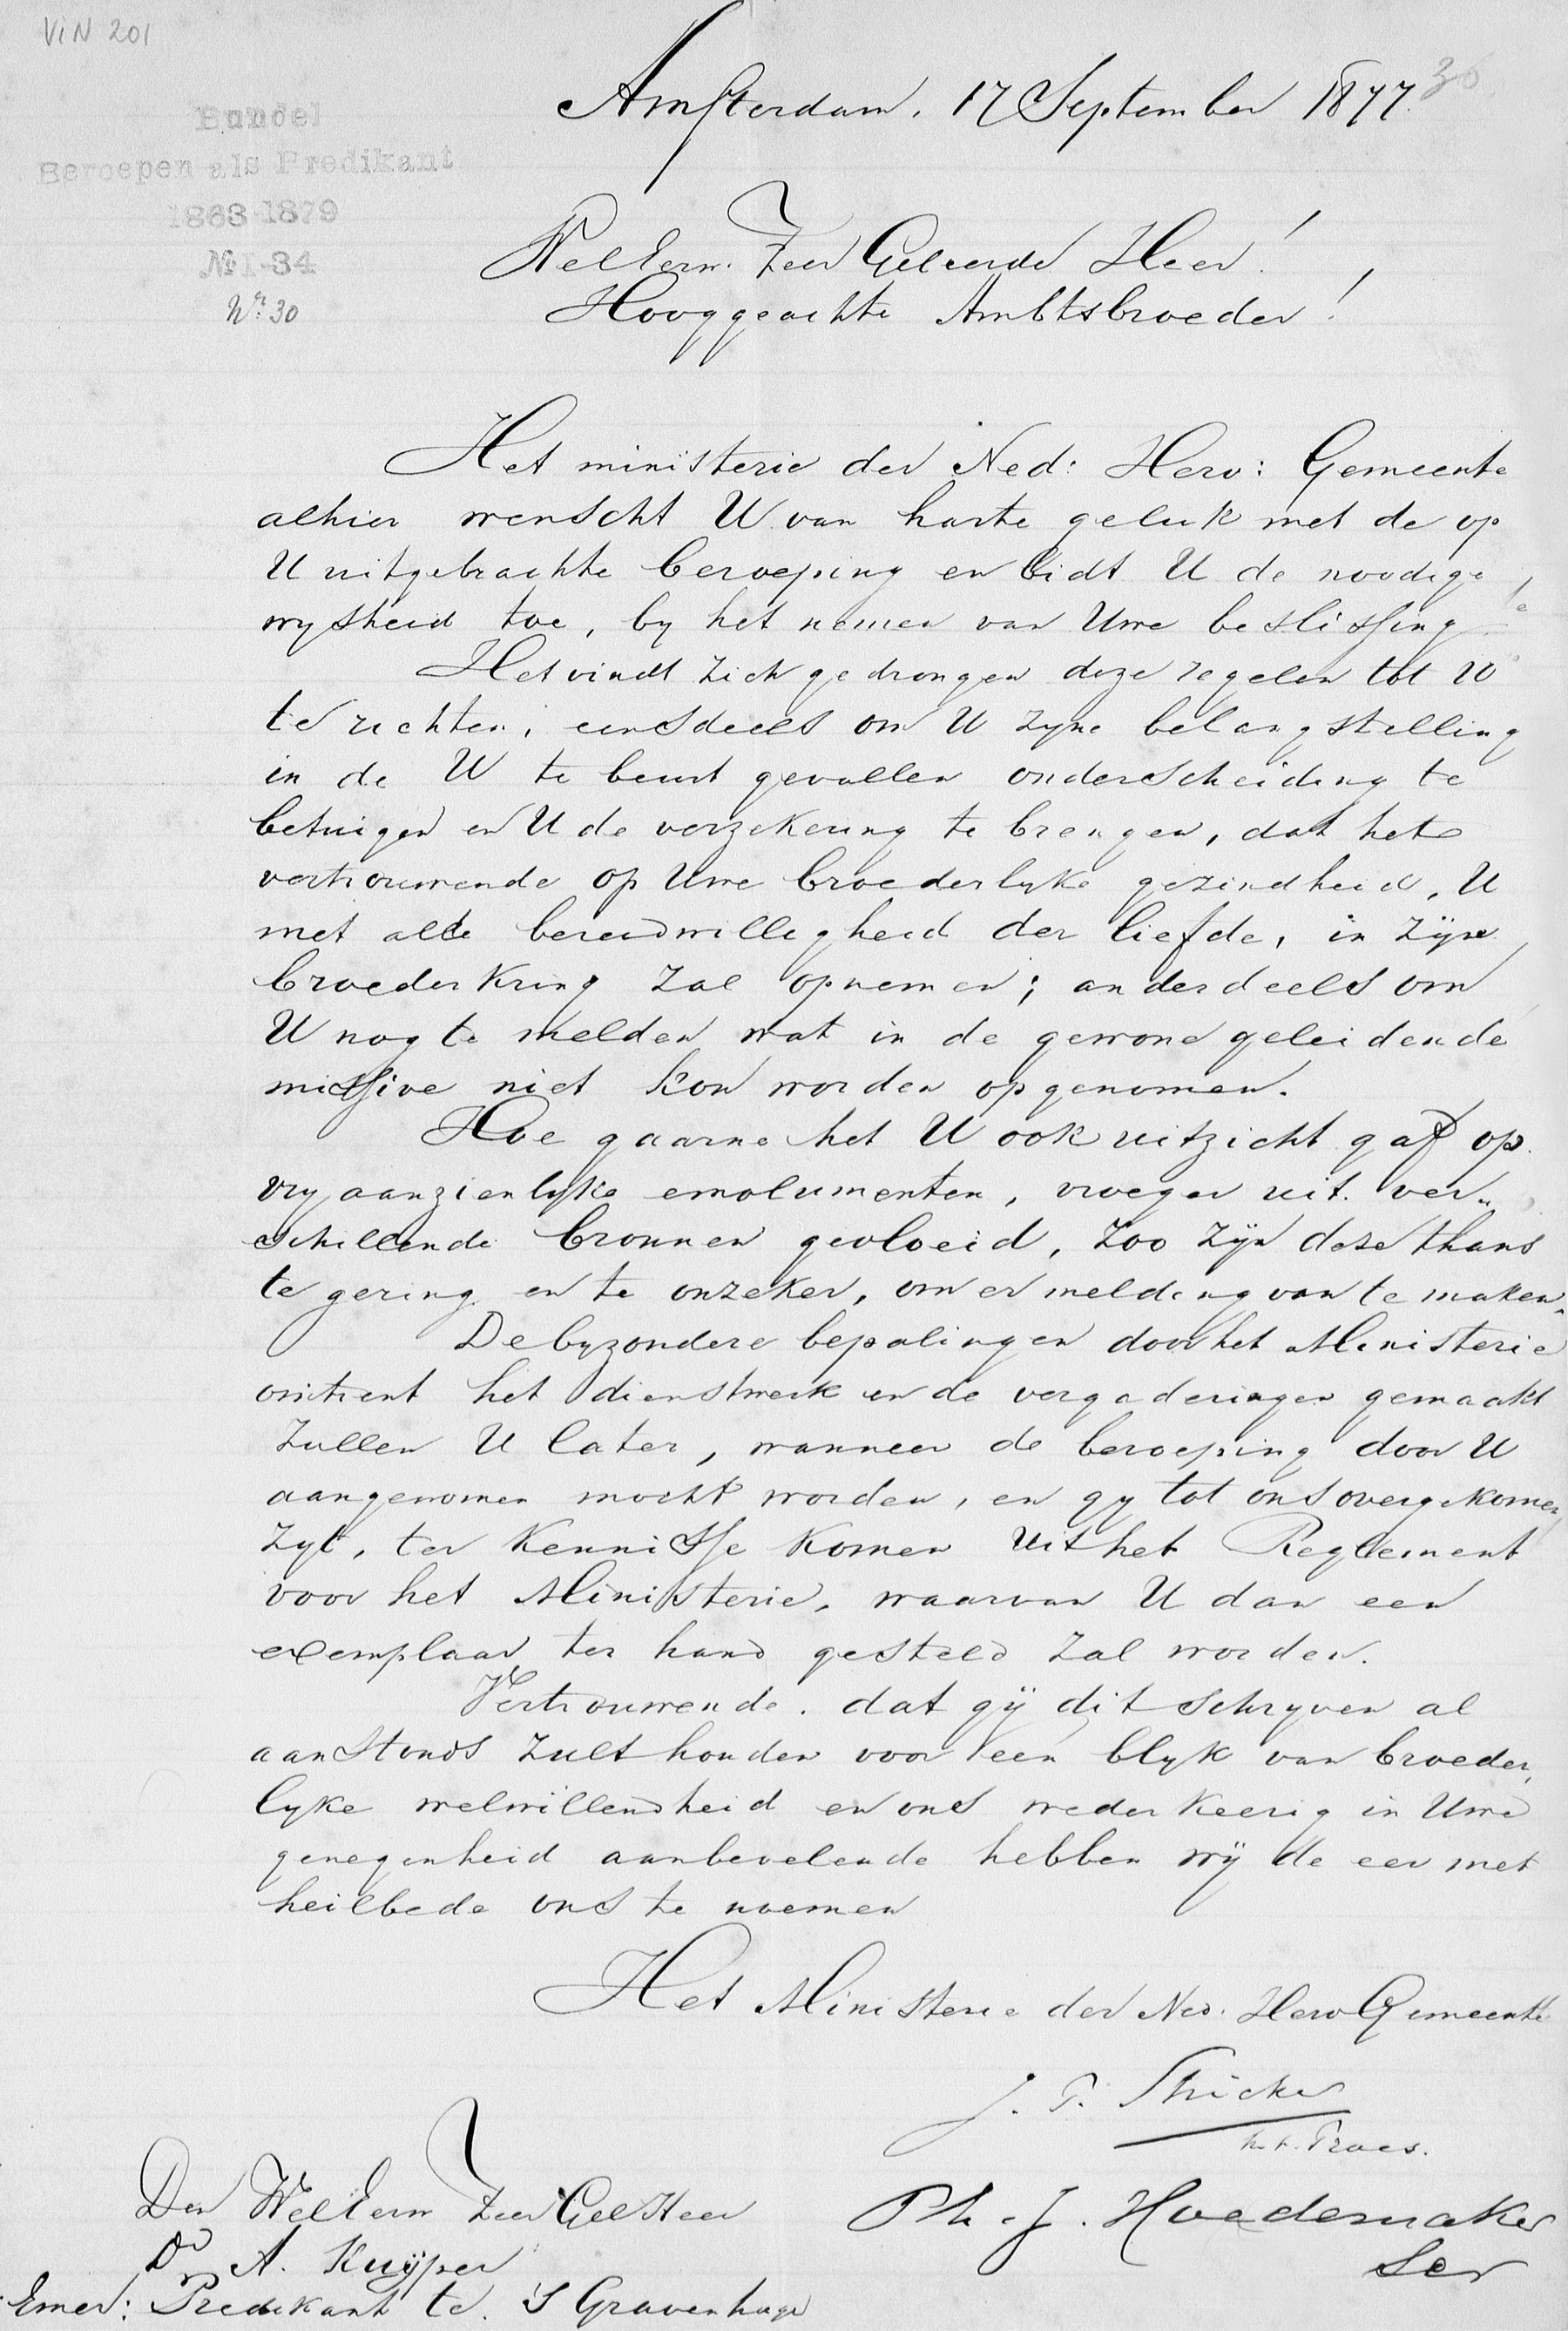 ViN 201
30
Bundel
Beroepen als Predikant
1863-1879
№ I-34
Nr. 30
Amsterdam, 17 September 1877.
WelEerw. Zeer Geleerde Heer!
Hooggeachte Ambtsbroeder!
Het ministerie der Ned: Herv: Gemeente
alhier wenscht U van harte geluk met de op
U uitgebrachte beroeping en bidt U de noodige
wysheid toe, by het nemen van Uwe beslissing
Het vindt zich gedrongen deze regelen tot U
te richten, eensdeels om U zyne belangstelling
in de U te beurt gevallen onderscheiding te
betuigen en U de verzekering te brengen, dat het
vertrouwende op Uwe broederlyke gezindheid, U
met alle bereidwilligheid der liefde, in zijne
broederkring zal opnemen; anderdeels om
U nog te melden wat in de gewone geleidende
missive niet kon worden opgenomen.
Hoe gaarne het U ook uitzicht gaf op
vry aanzienlyke emolumenten, vroeger uit ver„
schillende bronnen gevloeid, zoo zijn deze thans
te gering en te onzeker, om er melding van te maken.
De byzondere bepalingen door het Ministerie
omtrent het dienstwerk en de vergaderingen gemaakt
zullen U later, wanneer de beroeping door U
aangenomen mocht worden, en gy tot ons overgekomen
zyt, ter kennisse komen uit het Reglement
voor het Ministerie, waarvan U dan een
exemplaar ter hand gesteld zal worden.
Vertrouwende, dat gij dit schryven al
aanstonds zult houden voor een blyk van broeder„
lyke welwillendheid en ons wederkeerig in Uwe
genegenheid aanbevelende hebben wij de eer met
heilbede ons te noemen
Het Ministerie der Ned. Herv Gemeente
J. P. Stricker
h. t. Praes.
Ph. J. Hoedemaker
Scr
Den WelEerw Zeer Gel Heer
Dr A. Kuijper
Emer: Predikant te 's Gravenhage